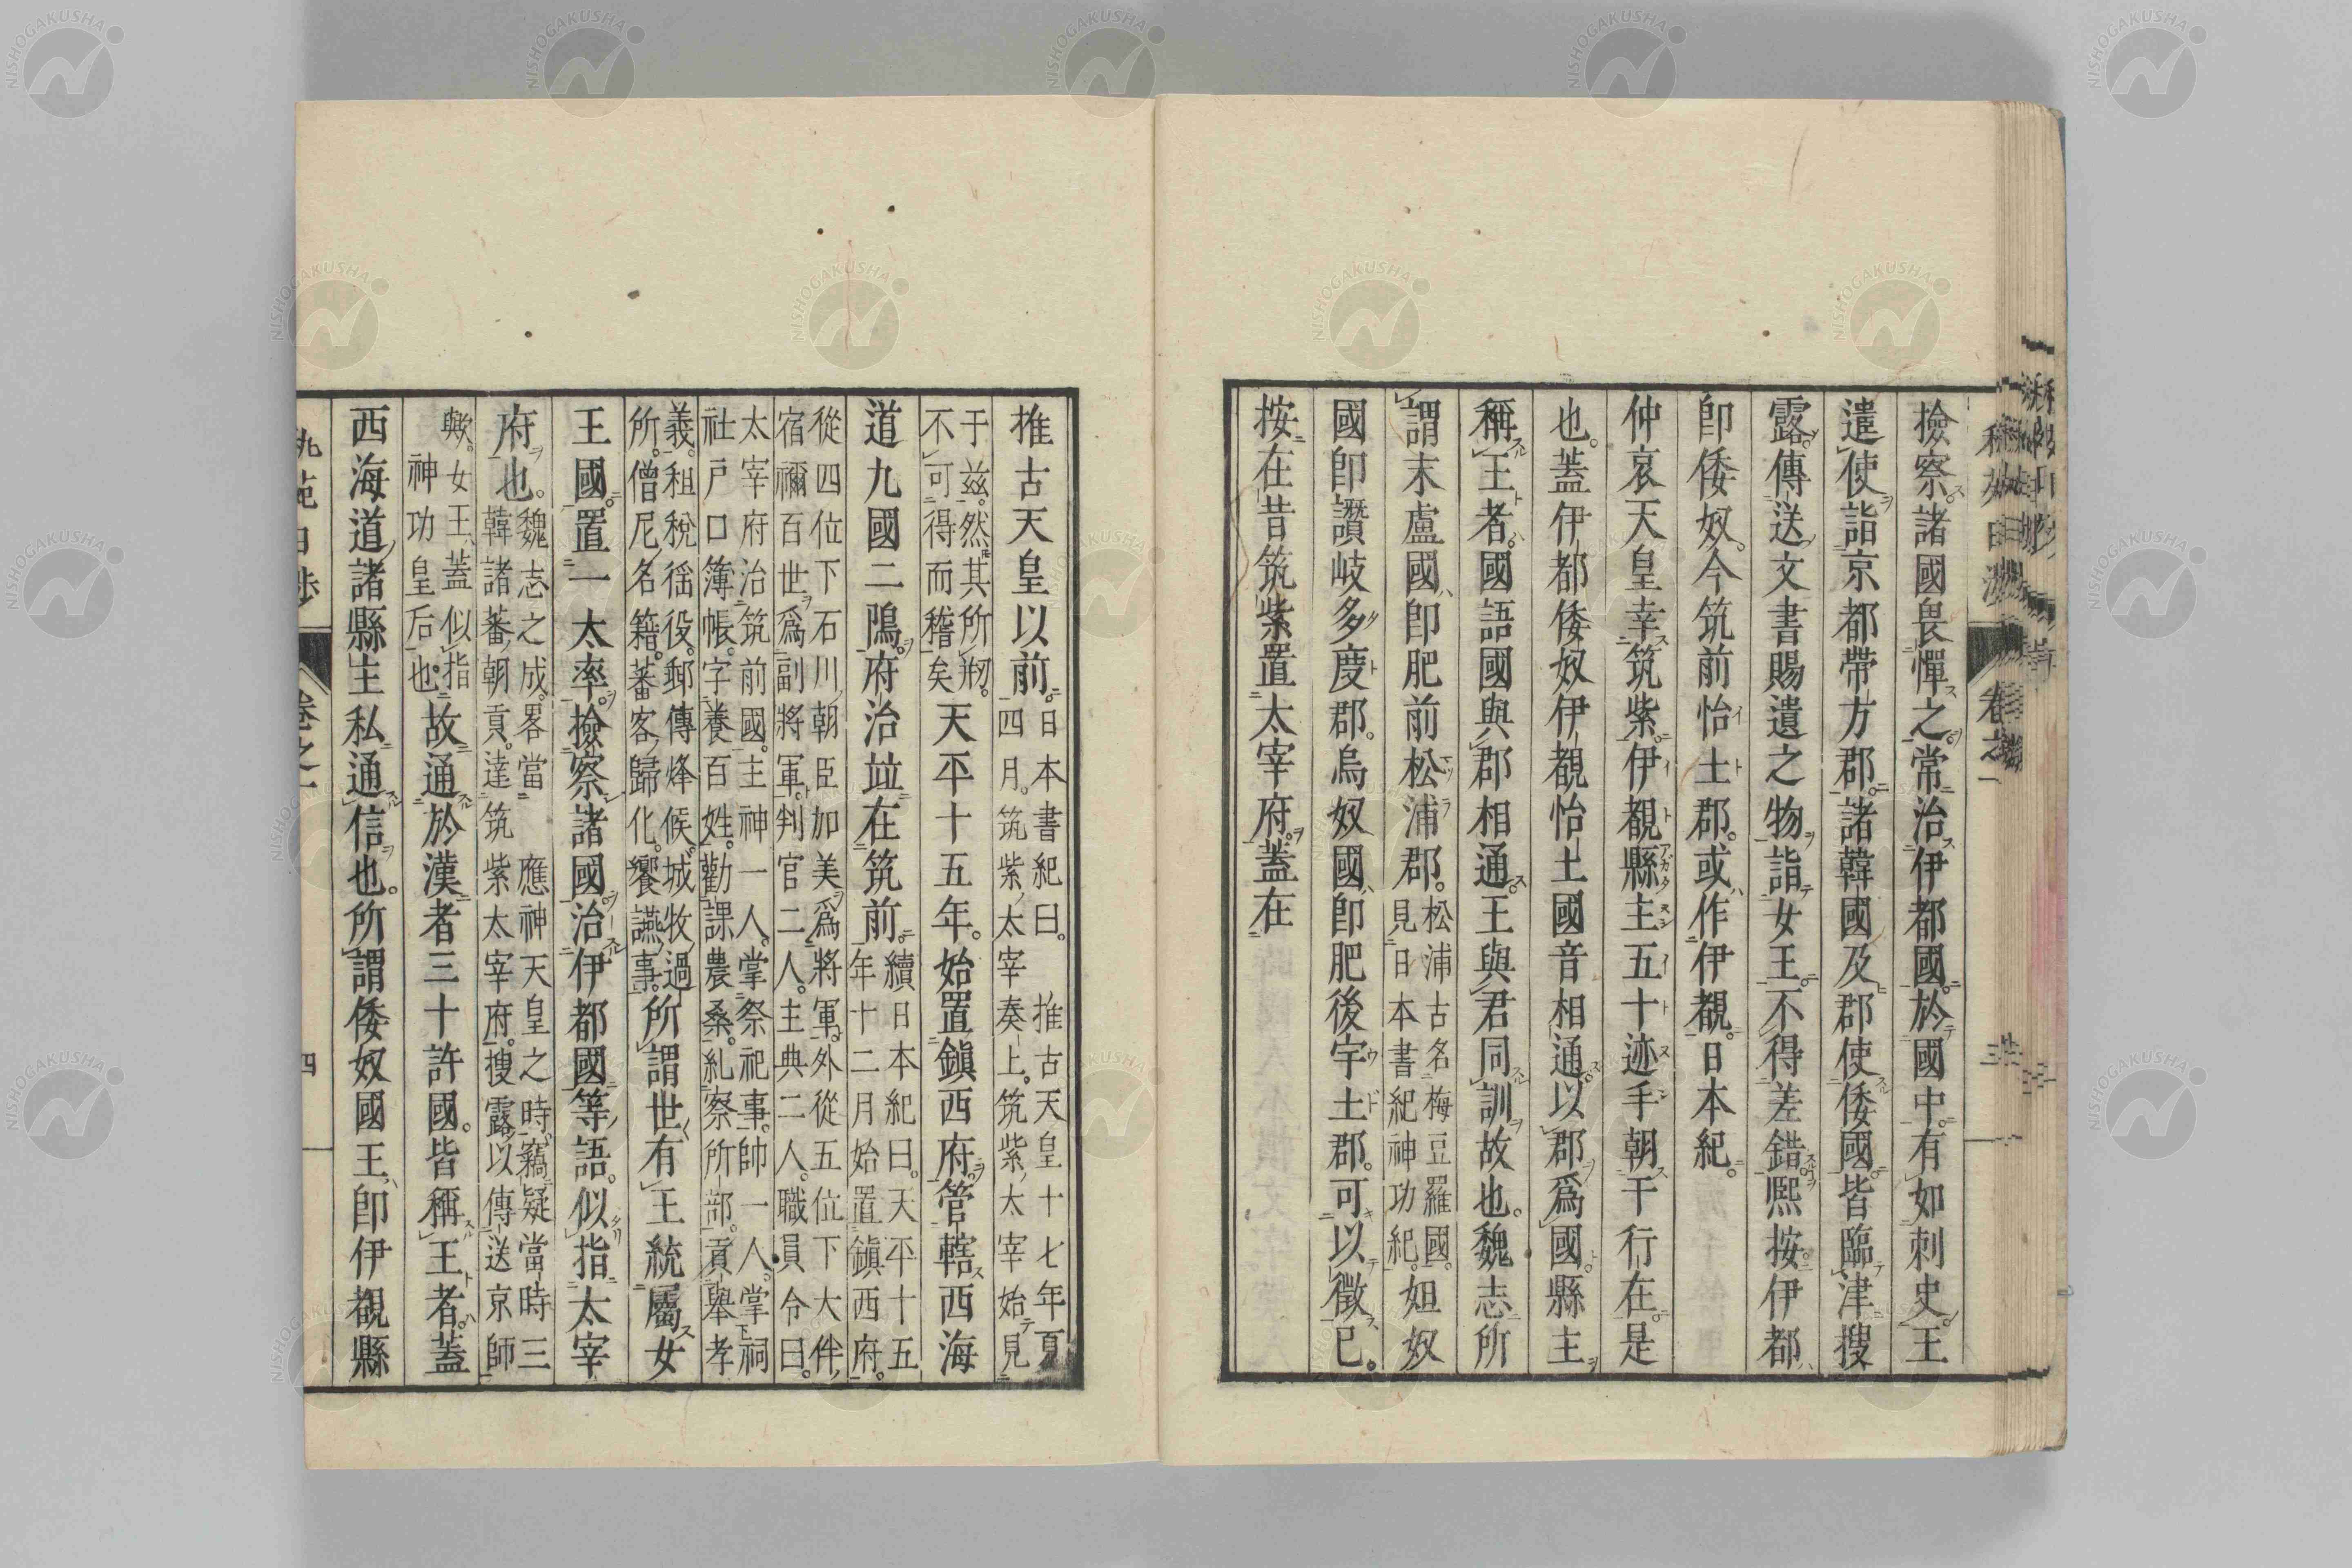 撿察諸國畏憚之常治伊都國於國中有如刺史王
遣使詣京都帶方郡諸韓國及郡使倭國皆臨津搜
露傳送文書賜遺之物詣女王不得差錯熙按伊都
卽倭奴今筑前怡土郡或作伊覩日本紀
仲哀天皇幸筑紫伊覩縣主五十迹手朝于行在是
也蓋伊都倭奴伊覩怡土國音相通以郡爲國縣主
稱王者國語國與郡相通王與君同訓故也魏志所
謂末盧國卽肥前松浦郡松浦古名梅豆羅國
見日本書紀神功紀妲奴
國卽讚岐多度郡烏奴國卽肥後宇土郡可以徵已
按在昔筑紫置太宰府蓋在
卷之一
推古天皇以前日本書紀曰推古天皇十七年夏
四月筑紫太宰奏上筑紫太宰始見
于茲然其所剏
不可得而稽矣天平十五年始置鎭西府管轄西海
道九國二隝府治竝在筑前續日本紀曰天平十五
年十二月始置鎭西府
從四位下石川朝臣加美爲將軍外從五位下大伴
宿禰百世爲副將軍判官二人主典二人職員令曰
太宰府治筑前國主神一人掌祭祀事帥一人掌祠
社戸口簿帳字養百姓勸課農桑糺察所部貢舉孝
義租稅徭役郵傳烽候城牧過
所僧尼名籍蕃客歸化饗讌事所謂世有王統屬女
王國置一太率撿察諸國治伊都國等語似指太宰
府也魏志之成畧當應神天皇之時竊疑當時三
韓諸蕃朝貢達筑紫太宰府搜露以傳送京師
歟女王蓋似指
神功皇后也故通於漢者三十許國皆稱王者蓋
西海道諸縣主私通信也所謂倭奴國王卽伊覩縣
四
NISHOGAKUSHA